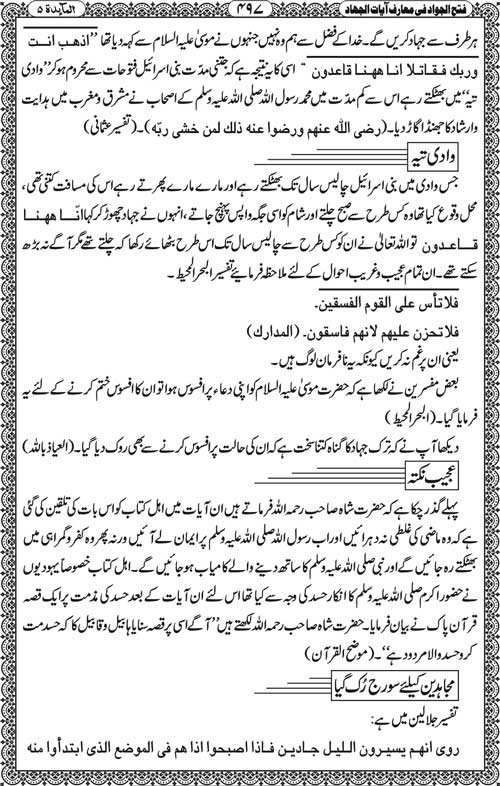 فتح الجواد فی معارف آیات الجهاد
۴۹۷
المآیدة ۵
ہر طرف سے جہاد کریں گے۔ خدا کے فضل سے ہم وہ نہیں جنہوں نے موسیٰ علیہ السلام سے کہہ دیا تھا ”اذهب انت
وربك فقاتلا انا ههنا قاعدون“ اسی کا یہ نتیجہ ہے کہ جتنی مدت بنی اسرائیل فتوحات سے محروم ہو کر ”وادی
تیہ“ میں بھٹکتے رہے اس سے کم مدت میں محمد رسول اللہ صلی اللہ علیہ وسلم کے اصحاب نے مشرق و مغرب میں ہدایت
وارشاد کا جھنڈا گاڑ دیا۔ (رضی الله عنهم ورضوا عنه ذلك لمن خشی ربه)۔ (تفسیر عثمانی)
وادی تیہ
جس وادی میں بنی اسرائیل چالیس سال تک بھٹکتے رہے اور مارے مارے پھرتے رہے اس کی مسافت کتنی تھی،
محل وقوع کیا تھا وہ کس طرح سے صبح چلتے اور شام کو اسی جگہ واپس پہنچ جاتے، انہوں نے جہاد چھوڑ کر کہا انّا ههنا
قاعدون تو اللہ تعالیٰ نے ان کو کس طرح سے چالیس سال تک اس طرح بٹھائے رکھا کہ چلتے تھے مگر آگے نہ بڑھ
سکتے تھے۔ ان تمام عجیب و غریب احوال کے لئے ملاحظہ فرمایئے تفسیر البحر المحیط۔
فلا تأس علی القوم الفسقین۔
فلا تحزن علیهم لانهم فاسقون۔ (المدارك)
یعنی ان پر غم نہ کریں کیونکہ یہ نافرمان لوگ ہیں۔
بعض مفسرین نے لکھا ہے کہ حضرت موسیٰ علیہ السلام کو اپنی دعاء پر افسوس ہوا تو ان کا افسوس ختم کرنے کے لئے یہ
فرمایا گیا۔ (البحر المحیط)
دیکھا آپ نے کہ ترک جہاد کا گناہ کتنا سخت ہے کہ ان کی حالت پر افسوس کرنے سے بھی روک دیا گیا۔ (العیاذ باللہ)
عجیب نکتہ
پہلے گذر چکا ہے کہ حضرت شاہ صاحب رحمہ اللہ فرماتے ہیں ان آیات میں اہل کتاب کو اس بات کی تلقین کی گئی
ہے کہ وہ ماضی کی غلطی نہ دہرائیں اور اب رسول اللہ صلی اللہ علیہ وسلم پر ایمان لے آئیں ورنہ پھر وہ کفر و گمراہی میں
بھٹکتے رہ جائیں گے اور نبی صلی اللہ علیہ وسلم کا ساتھ دینے والے کامیاب ہو جائیں گے۔ اہل کتاب خصوصاً یہودیوں
نے حضور اکرم صلی اللہ علیہ وسلم کا انکار حسد کی وجہ سے کیا تھا اس لئے ان آیات کے بعد حسد کی مذمت پر ایک قصہ
قرآن پاک نے بیان فرمایا۔ حضرت شاہ صاحب رحمہ اللہ لکھتے ہیں ”آگے اسی پر قصہ سنایا ہابیل و قابیل کا کہ حسد مت
کرو حسد والا مردود ہے“۔ (موضح القرآن)
مجاہدین کیلئے سورج رُک گیا
تفسیر جلالین میں ہے:
روی انهم یسیرون اللیل جادین فاذا اصبحوا اذا هم فی الموضع الذی ابتدأوا منه